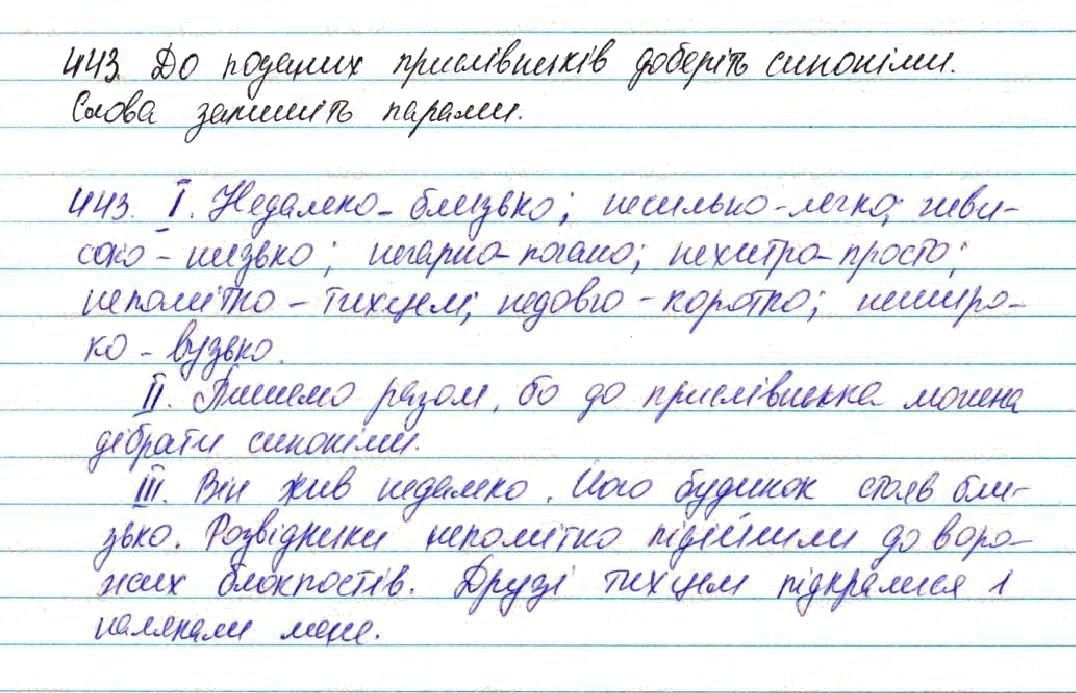 443. До поданих прислівників доберіть синоніми.
Слова запишіть парами.
443. I. Недалеко - близько; несильно - легко; неви-
соко - низько; негарно - погано; нехитро - просто;
непомітно - тихцем; недовго - коротко; нешир­о-
ко - вузько.
II. Пишемо разом, бо до прислівника можна
дібрати синоніми.
III. Він жив недалеко. Його будинок стояв бли-
зько. Розвідники непомітно підійшли до воро-
жих блокпостів. Друзі тихцем підкралися і
налякали мене.